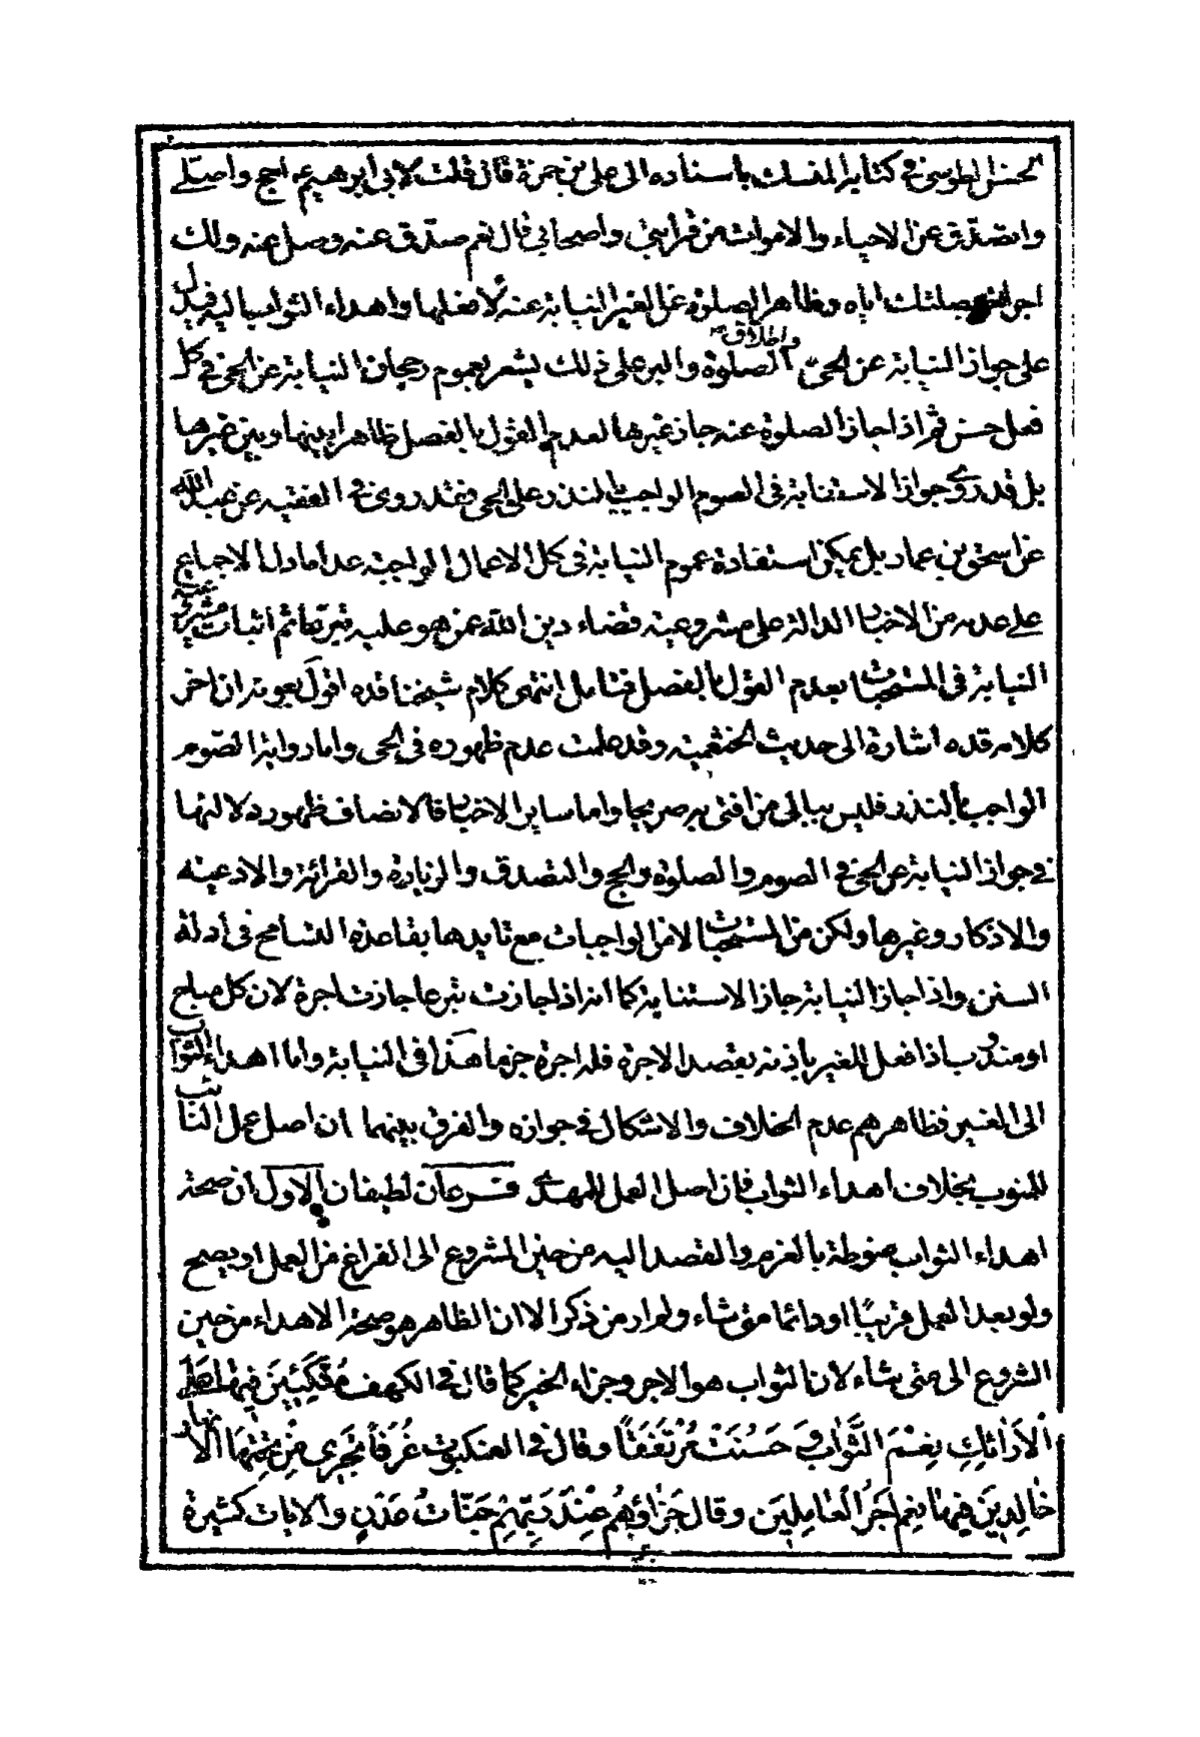 الحسين الطوسى فى كتابه المنسك باسناده الى على بن حمزة قال قلت لابى ابرهيم ع احج واصلى
واتصدق عن الاحياء والاموات من قرابتى واصحابى قال نعم صدق عنه وصل عنه ولك
اجر بصلتك اياه وظاهر الصلوة عن الغير النيابة عنه لا فعلها واهداء الثواب اليه فيدل
على جواز النيابة عن الحى واطلاق الصلوة والبر على ذلك يشعر بعموم رجحان النيابة عن الحى فى كل
فعل حسن ثم اذا جاز الصلوة عنه جاز غيرها لعدم القول بالفصل ظاهرا بينها وبين غيرها
بل قد روى جواز الاستنابة فى الصوم الواجب بالنذر على الحى فقد روى فى الفقيه عن عبدالله
عن اسحق بن عمار بل يمكن استفادة عموم النيابة فى كل الاعمال الواجبة عدا ما دل الاجماع
على عدمه من الاخبار الدالة على مشروعية قضاء دين الله عمن هو عليه تبرعا ثم اثبات مشروعية
النيابة فى المستحبات بعدم القول بالفصل فتامل انتهى كلام شيخنا قده اقول بعونه ان اخر
كلامه قده اشارة الى حديث الخثعمية وقد علمت عدم ظهوره فى الحى واما رواية الصوم
الواجب بالنذر فليس ببالى من افتى به صريحا واما ساير الاخبار فالانصاف ظهور دلالتها
فى جواز النيابة عن الحى فى الصوم والصلوة والحج والتصدق والزيارة والقرائة والادعية
والاذكار وغيرها ولكن من المستحبات لا من الواجبات مع تايدها بقاعدة التسامح فى ادلة
السنن واذا جاز النيابة جاز الاستنابة كما انه اذا جازت تبرعا جازت اجرة لان كل مباح
او مندوب اذا فعل للغير باذنه بقصد الاجرة فله اجرة جزما هذا فى النيابة واما اهداء الثواب
الى الغير فظاهرهم عدم الخلاف والاشكال فى جوازه والفرق بينهما ان اصل عمل النائب
للمنوب بخلاف اهداء الثواب فان اصل العمل للمهدى فرعان لطيفان الاول ان صحة
اهداء الثواب منوطة بالعزم والقصد اليه من حين المشروع الى الفراغ من العمل او يصح
ولو بعد العمل قريبًا او دائما متى شاء ولم ار من ذكر الا ان الظاهر هو صحة الاهداء من حين
الشروع الى متى شاء لان الثواب هو الاجر وجزاء الخير كما قال فى الكهف مُتَّكِئِينَ فِيهَا عَلَى
الْاَرَائِكِ نِعْمَ الثَّوَابُ وَ حَسُنَتْ مُرْتَفَقًا وقال فى العنكبوت غُرَفاً تَجْرِى مِنْ تَحْتِهَا الْاَنْهَارُ
خَالِدِينَ فِيهَا نِعْمَ اَجْرُ الْعَامِلِينَ وقال جَزَاؤُهُمْ عِنْدَ رَبِّهِمْ جَنَّاتُ عَدْنٍ والايات كثيرة